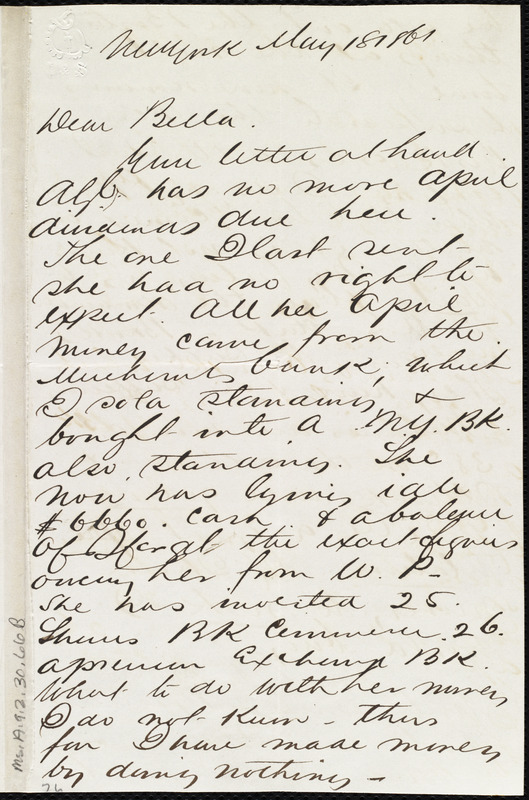 New York May 18 1861
Dear Bella.
Your letter at hand.
has no more April
dividends due here.
The one I last sent
she had no right to
expect. All her April
money came from the
Merchants bank, which
I sold standing &
bought into A N.Y. BK.
also standing. She
now has lying idle
$6660. cash & a balance
of I forget the exact figures
owing her from W. P-
She has invested 25.
Shares BK Commerce. 26.
American Exchange BK.
What to do with her money
I do not know - thus
far I have made money
by doing nothing -
Ms.A.9.2.30.66B